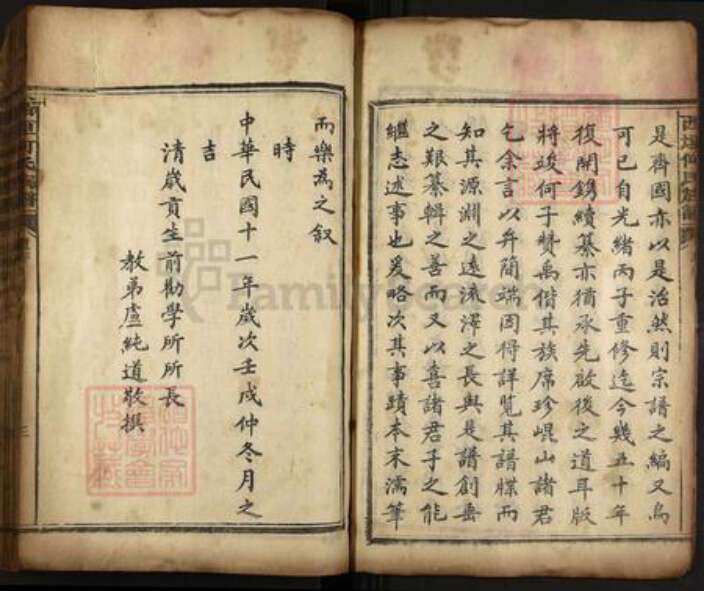 是齊國亦以是治然則宗譜之編又烏
可已自光緒丙子重修迄今幾五十年
復開鐫續纂亦猶承先啟後之道耳版
將竣何子贊禹偕其族席珍崐山諸君
乞余言以弁簡端因得詳覧其譜牒而
知其源淵之遠流澤之長與是譜創垂
之艱纂輯之善而又以喜諸君子之能
繼志述事也爰略次其事蹟本末濡筆
而樂為之叙
時
中華民國十一年歲次壬戌仲冬月之
吉
清歲貢生前勸學所所長
教弟盧純道敬撰
FamilySearch